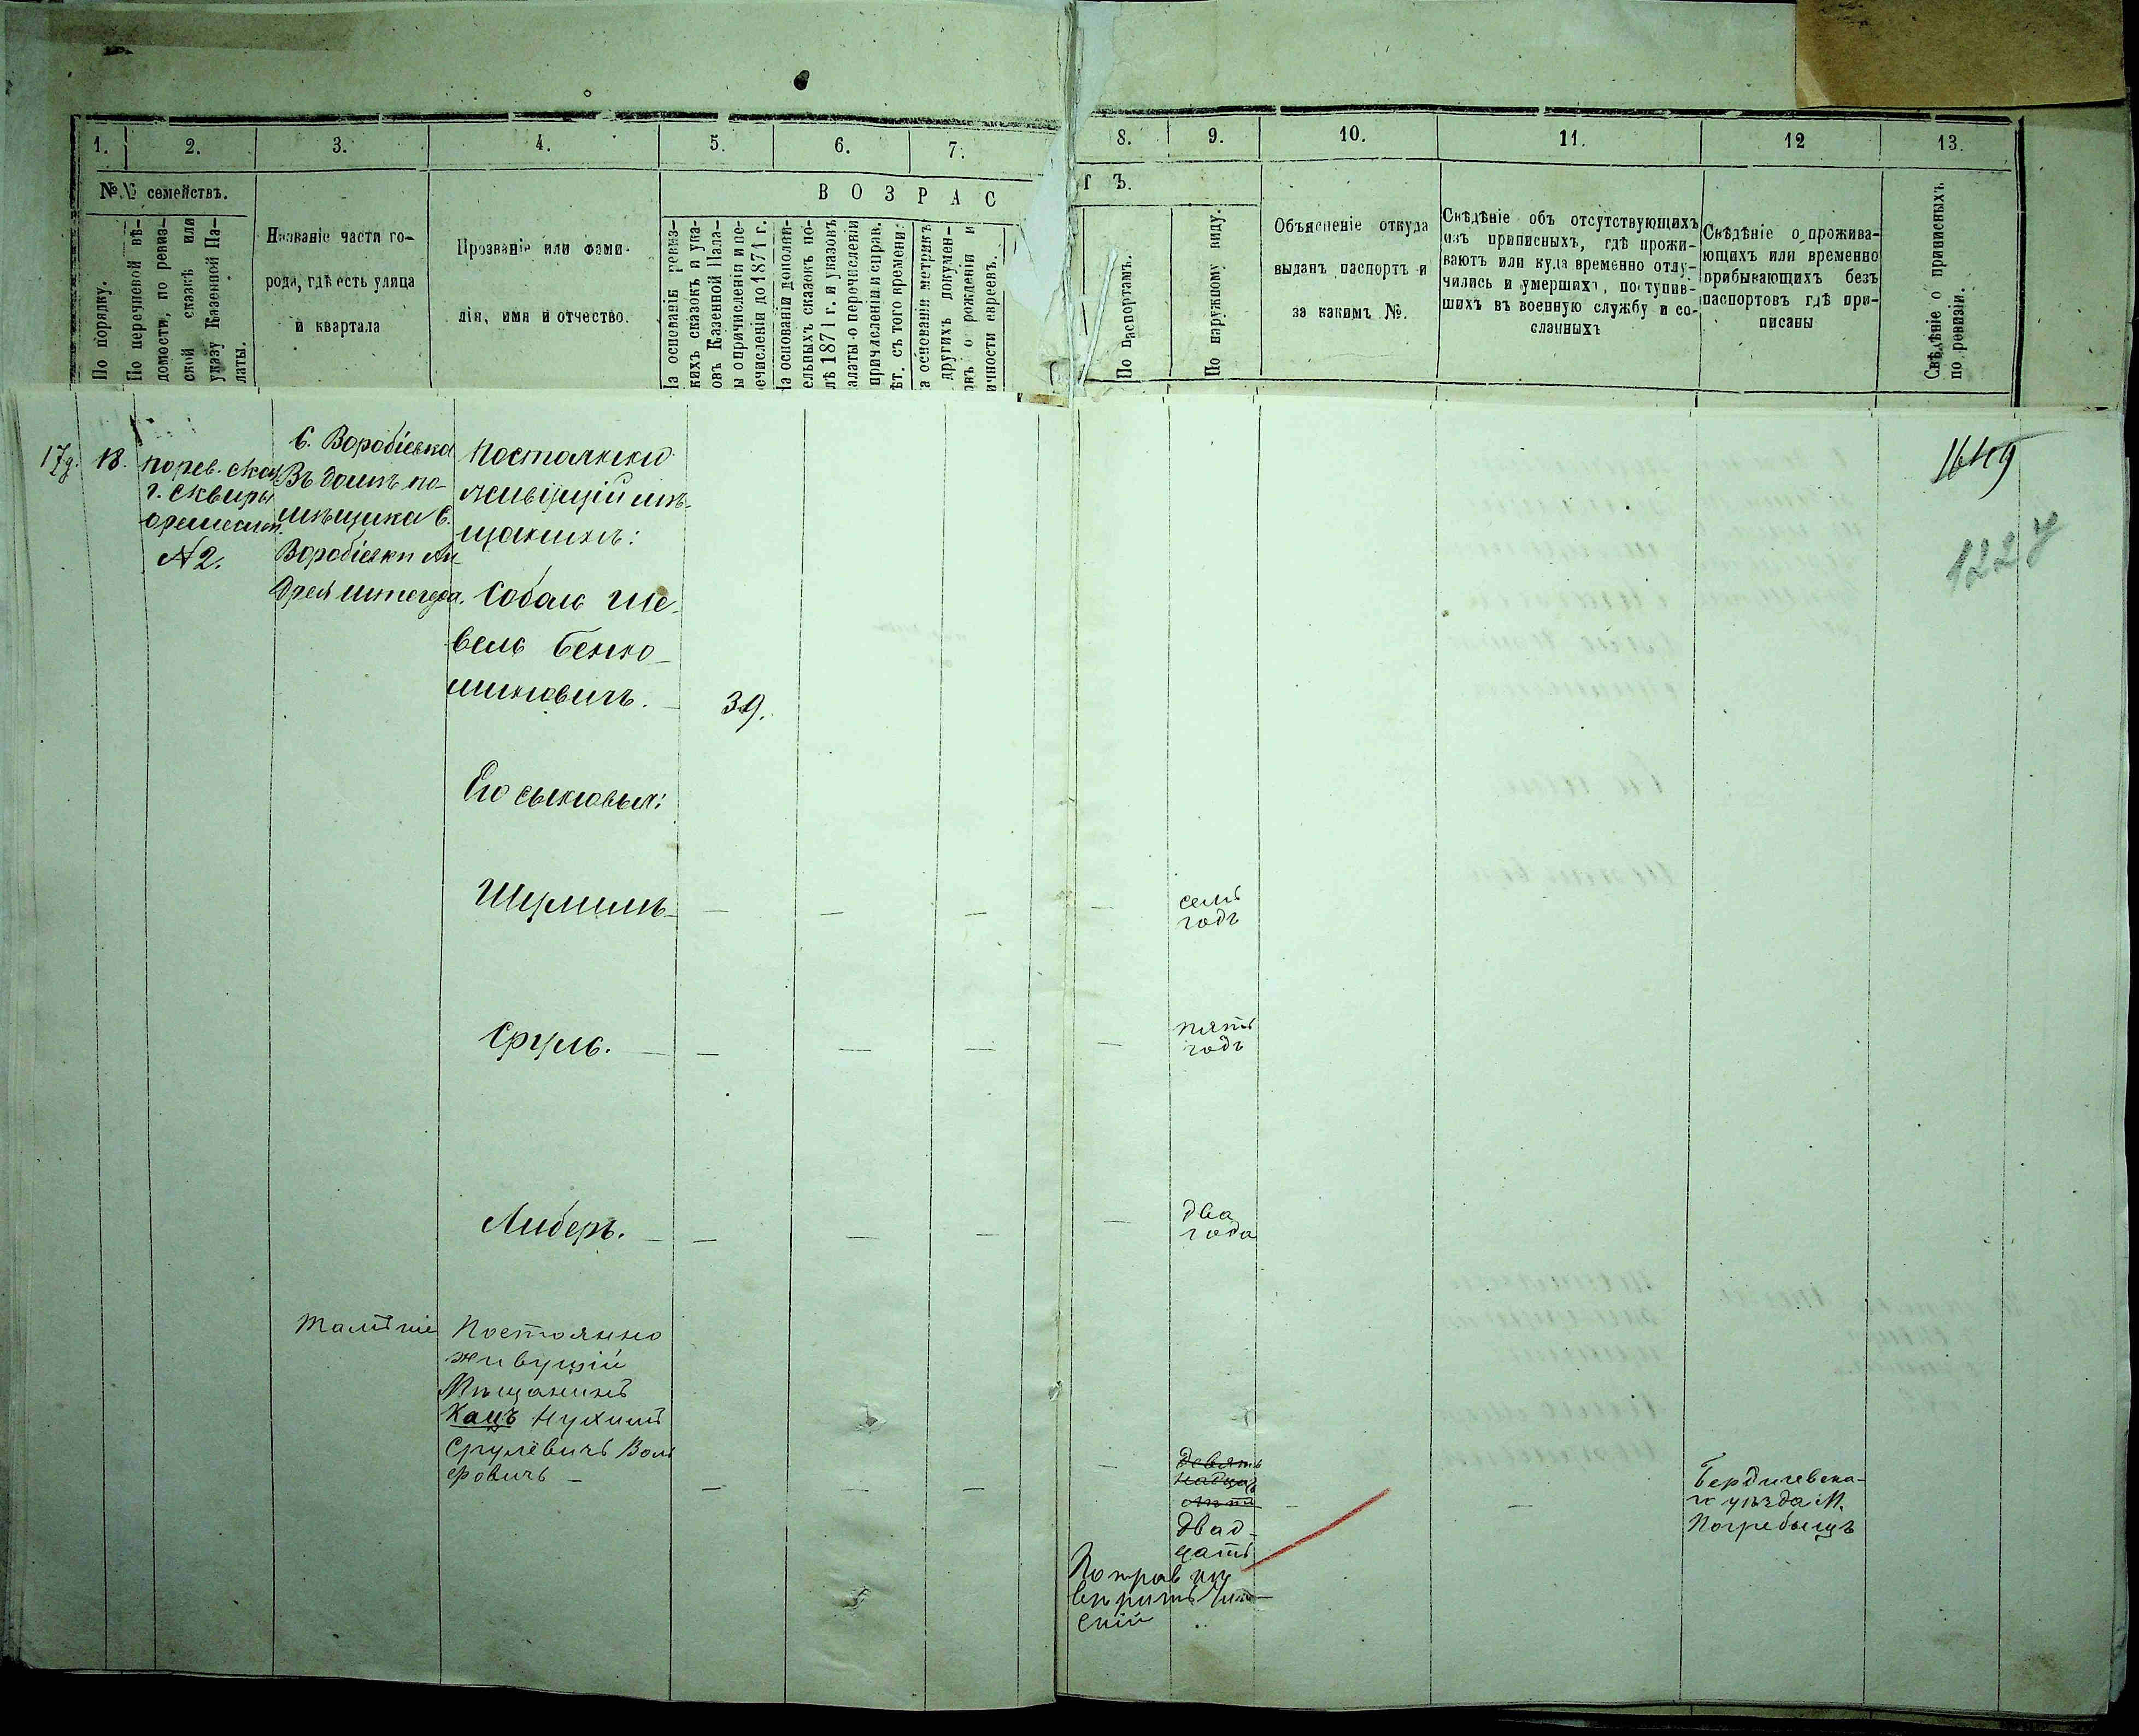 1.
2.
3.
4.
5.
6.
7.
8.
9.
10.
11.
12
13.
№№ семействъ.
По порядку.
По перечневой вѣ-
домости, по ревиз-
ской сказкѣ или
указу Казенной Па-
латы.
Названіе части го-
рода, гдѣ есть улица
и квартала
Прозваніе или фами-
лія, имя и отчество.
В О З Р А С
Т Ъ.
На основаніи ревиз-
кихъ сказокъ и ука-
овъ Казенной Пала-
ы о причисленіи и пе-
ечисленіи до 1871 г.
На основаніи дополни-
ельныхъ сказокъ по-
лѣ 1871 г. и указовъ
алаты о перечисленіи
причисленіи и справ.
ѣт. съ того времени.
а основаніи метрикъ
другихъ докумен-
овъ о рожденіи и
ичности евреевъ.
По паспортамъ.
По наружному виду.
Объясненіе откуда
выданъ паспортъ и
за какимъ №.
Свѣдѣніе объ отсутствующихъ
изъ приписныхъ, гдѣ прожи-
ваютъ или куда временно отлу-
чились и умершихъ, поступив-
шихъ въ военную службу и со-
сланныхъ
Свѣдѣніе о прожива-
ющихъ или временно
прибывающихъ безъ
паспортовъ гдѣ при-
писаны
Свѣдѣніе о приписныхъ
по ревизіи.
18.
по рев. скаж
г. Сквиры
№ 2.
С. Воробіевка
Въ домѣ по-
мѣщика С.
Воробіевки Ан
дрея
Постоянно
живущій мѣ-
щанинъ:
Соболь Ше-
вель Бенно-
миновичъ.
39.
Его сыновья:
Шулимъ
семь
годъ
Сруль.
пять
годъ
Либеръ.
два
года
1649
1227
Постоянно
живущій
Мѣщанинъ
Кацъ Нухимъ
Срулевичъ Воль
фовичъ
девят
надца
дват
цать
Бердичевска-
го уѣзда М.
Погребыщъ